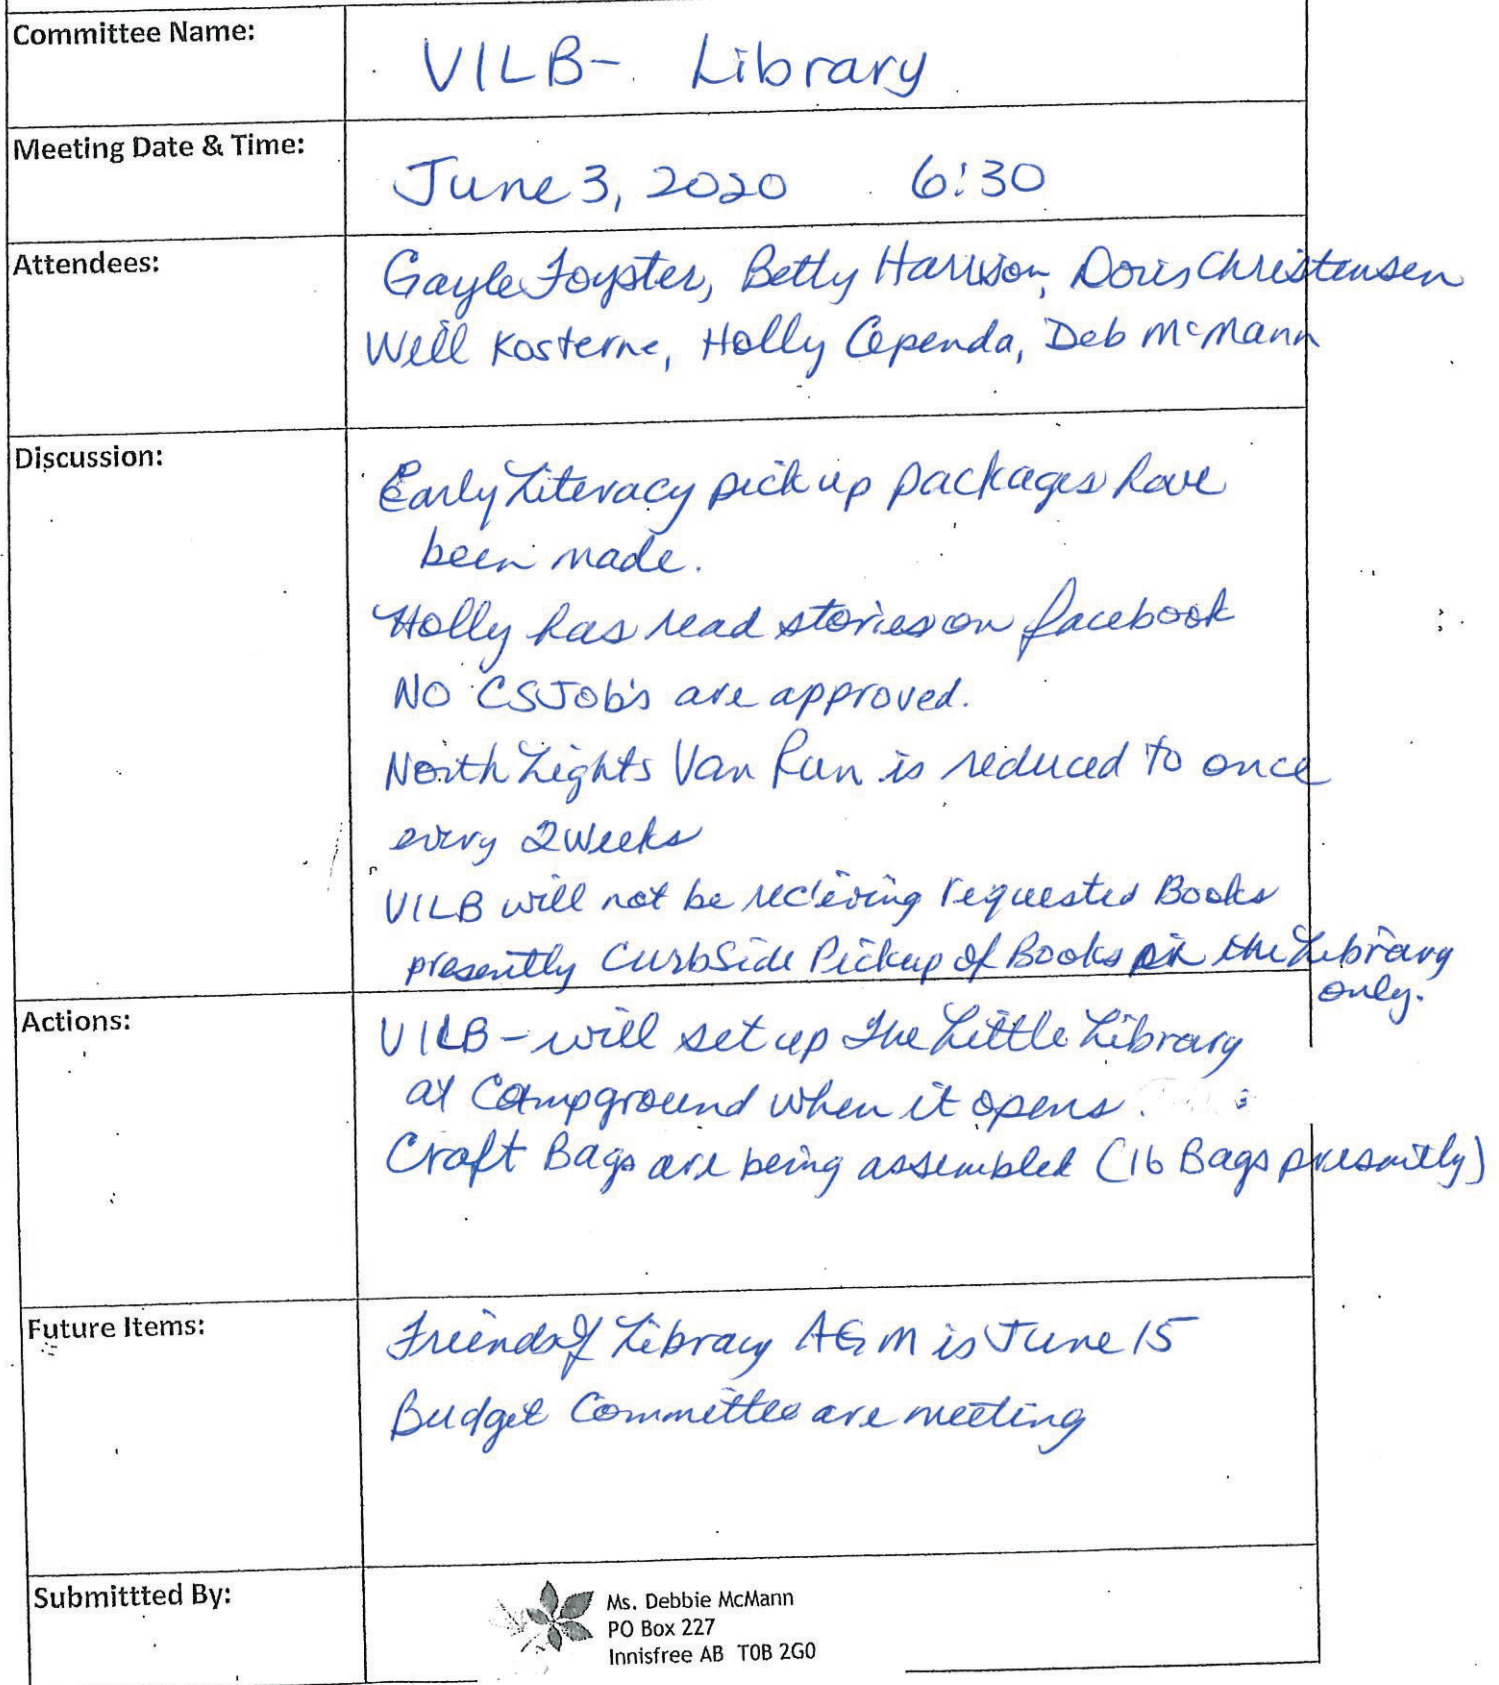 Committee Name:
VILB- Library
Meeting Date & Time:
June 3, 2020 6:30
Attendees:
Gayle Foyster, Betty Harrison, Doris Christensen
Will Kosterne, Holly Cependa, Deb McMann
Discussion:
Early Literacy pick up packages have
been made.
Holly has read stories on facebook
NO CSJob's are approved.
North Lights Van Run is reduced to once
every 2 weeks
VILB will not be recieving requested Books
presently CurbSide Pickup of Books in the Library
only.
Actions:
VILB - will set up the Little Library
at Campground when it opens.
Craft Bags are being assembled (16 Bags presently)
Future Items:
Friends of Library AGM is June 15
Budget Committee are meeting
Submittted By:
Ms. Debbie McMann
PO Box 227
Innisfree AB T0B 2G0